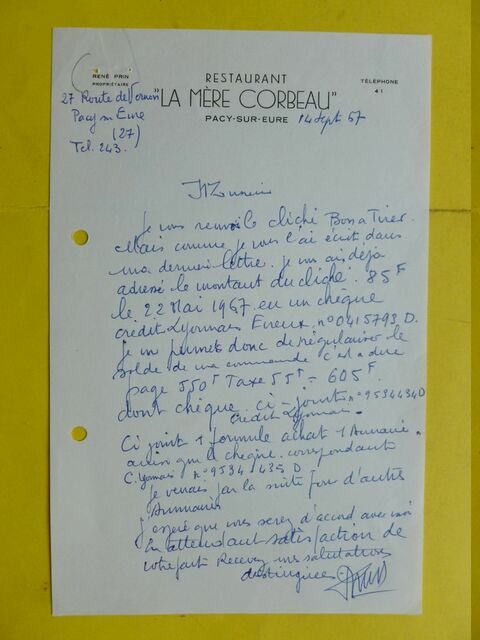 RENÉ PRIN
PROPRIÉTAIRE
RESTAURANT
"LA MÈRE CORBEAU"
PACY-SUR-EURE
TÉLÉPHONE
41
27 Route de Vernon
Pacy sur Eure
(27)
Tel. 243.
14 Sept 67
Monsieur
Je vous renvoie le cliché Bon a Tirer.
Mais comme je vous l'ai écrit dans
ma dernière lettre. je vous ai déjà
adressé le montant du cliché. 85F
le 22 Mai 1967 en un chèque
crédit Lyonnais Evreux. n° 0415793 D.
je me permets donc de régulariser le
solde de ma commande c'est a dire
page 550F Taxe 55F = 605F.
dont chèque ci-joint n° 9534434D
Crédit Lyonnais.
Ci joint 1 formule achat 1 Annuaire.
ainsi que le chèque correspondant
C. Lyonnais n° 9534435 D
Je verrais par la suite pour d'autres
Annuaires
J'espère que vous serez d'accord avec moi
En attendant satisfaction de
votre part Recevez mes salutations
distinguées